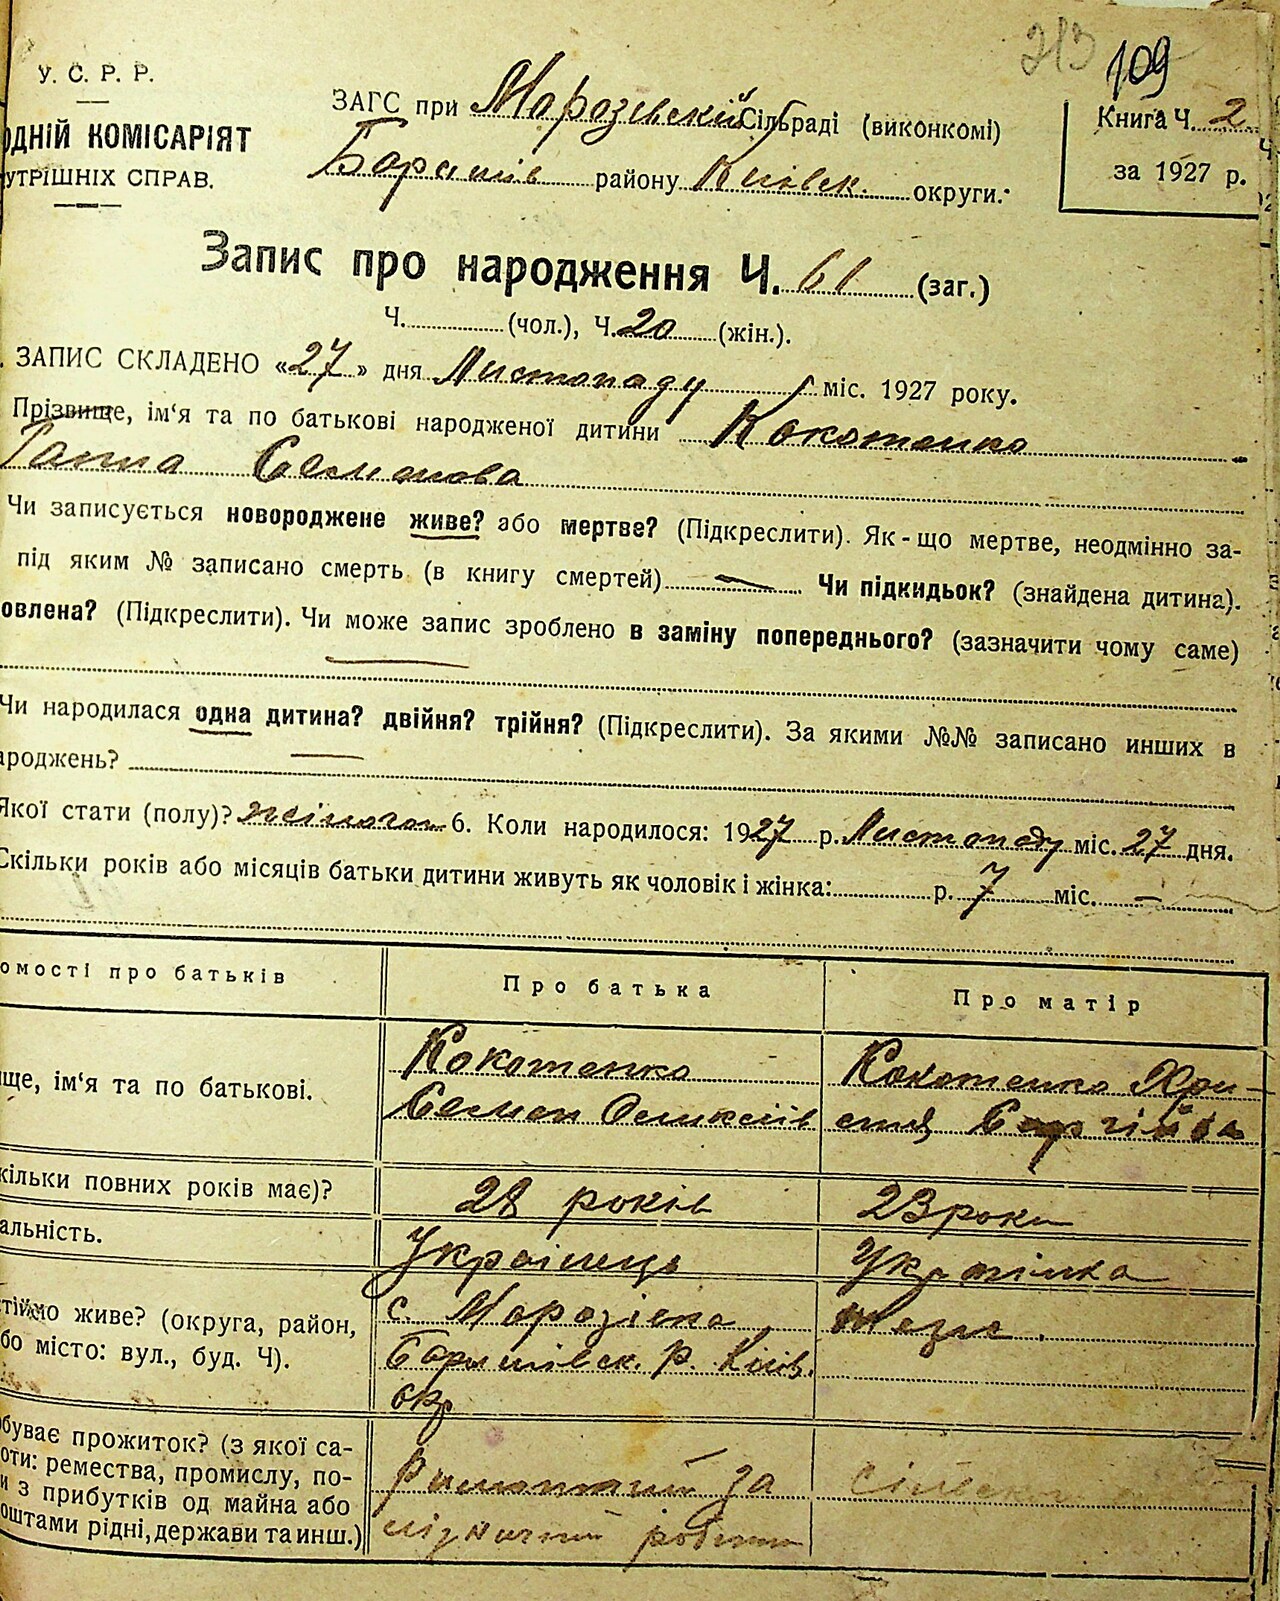 213 109
У. С. Р. Р.
ОДНІЙ КОМІСАРІЯТ
УТРІШНІХ СПРАВ.
ЗАГС при Морозівській Сільраді (виконкомі)
Баришів району Київськ. округи.
Книга Ч. 2
за 1927 р.
Запис про народження Ч. 61 (заг.)
Ч. (чол.), Ч. 20 (жін.).
ЗАПИС СКЛАДЕНО «27» дня Листопаду міс. 1927 року.
Прізвище, ім‘я та по батькові народженої дитини Кокотенко
Ганна Семенова
Чи записується новороджене живе? або мертве? (Підкреслити). Як-що мертве, неодмінно за-
під яким № записано смерть (в книгу смертей) — Чи підкидьок? (знайдена дитина).
овлена? (Підкреслити). Чи може запис зроблено в заміну попереднього? (зазначити чому саме)
Чи народилася одна дитина? двійня? трійня? (Підкреслити). За якими №№ записано инших в
ароджень?
Якої стати (полу)? жіночої 6. Коли народилося: 1927 р. Листопаду міс. 27 дня.
Скільки років або місяців батьки дитини живуть як чоловік і жінка: р. 7 міс. —
омості про батьків Про батька Про матір
ще, ім‘я та по батькові.
Кокотенко
Семен Олексіїв
Кокотенко Хри-
стя Сергіївна
кільки повних років має)? 28 років 23 роки
альність. Українець Українка
стійно живе? (округа, район,
бо місто: вул., буд. Ч).
с. Морозівка
Баришівськ. р. Київ.
окр
тезс.
буває прожиток? (з якої са-
оти: ремества, промислу, по-
и з прибутків од майна або
оштами рідні, держави та инш.)
за